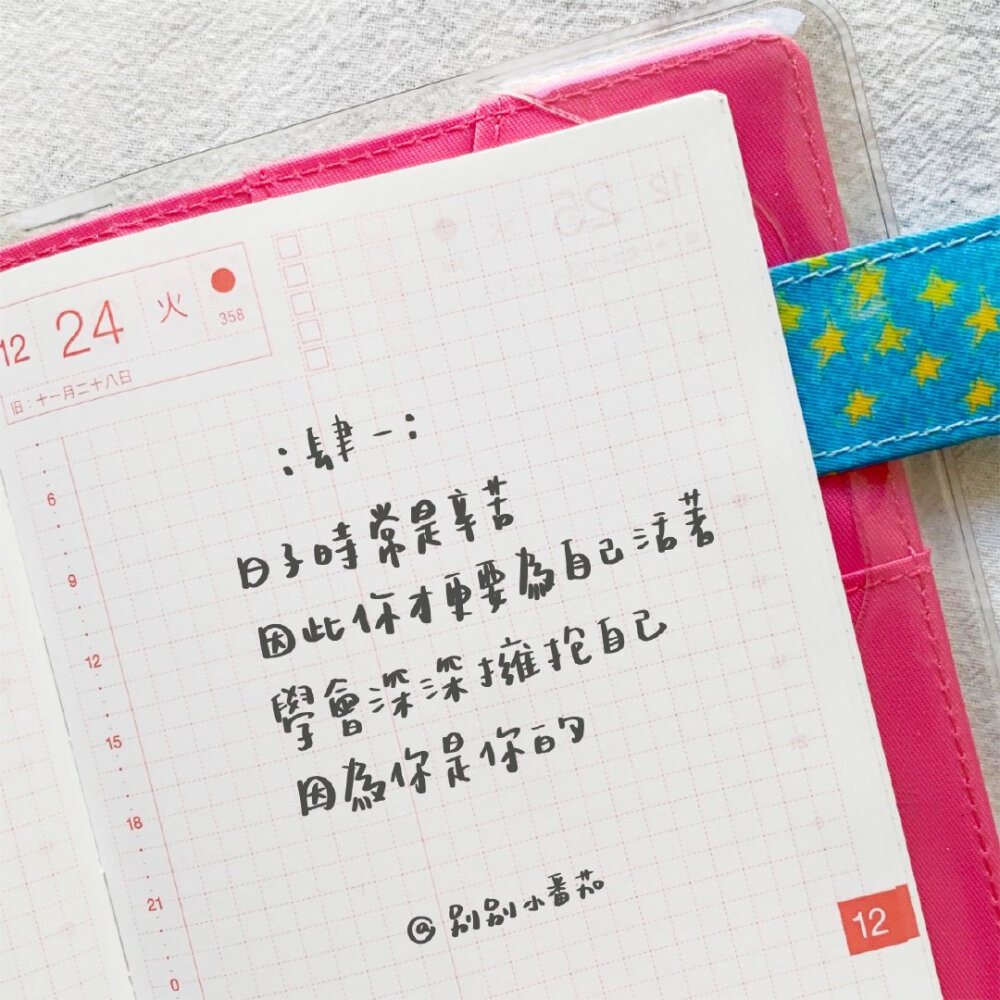 12 24 火
358
旧:十一月二十八日
:肆一:
日子時常是辛苦
因此你才更要為自己活著
學會深深擁抱自己
因為你是你的
@別別小番茄
6
9
12
15
18
21
0
12